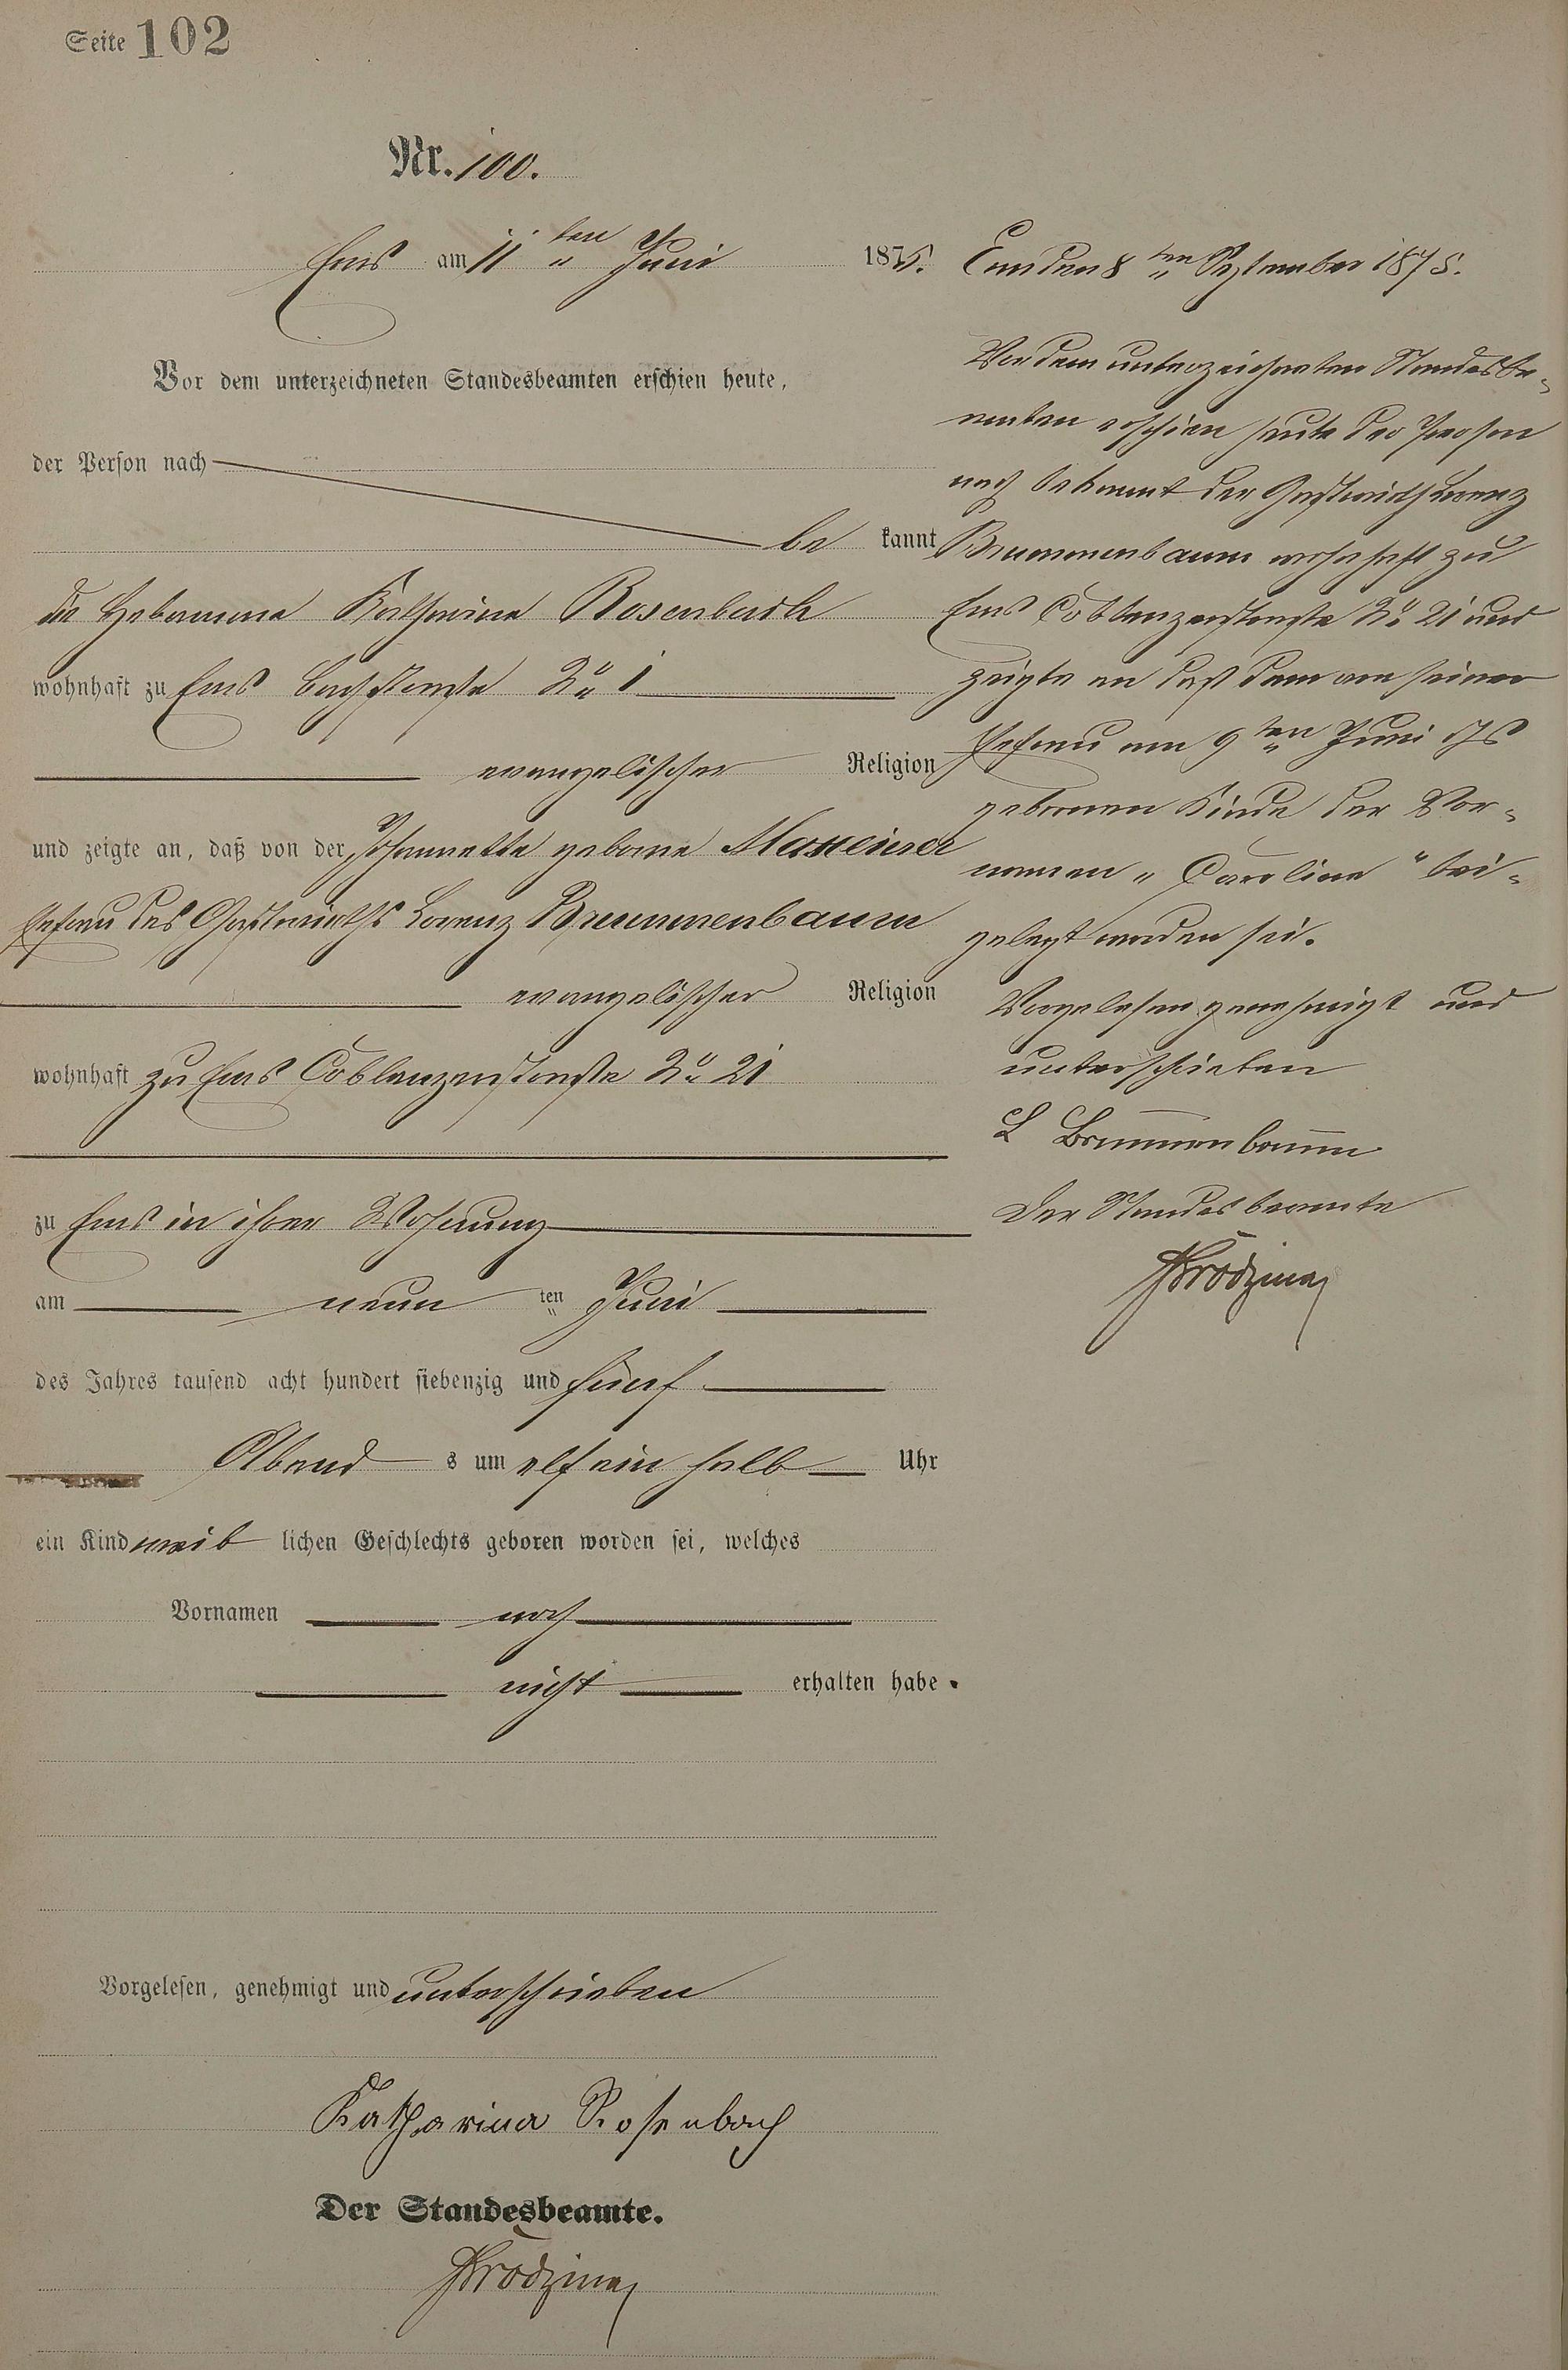 Seite 102
Nr. 100.
Ems am 11ten Juni 1875.
Vor dem unterzeichneten Standesbeamten erschien heute,
der Person nach
be kannt
die Hebamme Katharina Rosenbach
wohnhaft zu Ems Bachstraße No 1
evangelischer Religion
und zeigte an, daß von der Johannette geborne Maxeiner
Ehefrau des Gastwirths Lorenz Brummenbaum
evangelischer Religion
wohnhaft zu Ems Coblenzerstraße No 21
zu Ems in ihrer Wohnung
am neun ten Juni
des Jahres tausend acht hundert siebenzig und fünf
Abend s um elf ein halb Uhr
ein Kind weib lichen Geschlechts geboren worden sei, welches
Vornamen noch
nicht erhalten habe.
Vorgelesen, genehmigt und unterschrieben
Katharina Rosenbach
Der Standesbeamte.
Ems den 8ten September 1875.
Vor dem unterzeichneten Standesbe-
amten erschien heute der Person
nach bekannt der Gastwirth Lorenz
Brummenbaum wohnhaft zu
Ems Coblenzerstraße No 21 und
zeigte an daß dem von seiner
Ehefrau am 9ten Juni ds Js
gebornen Kinde der Vor-
namen "Caroline" bei-
gelegt worden sei.
Vorgelesen genehmigt und
unterschrieben
L Brummenbaum
Der Standesbeamte